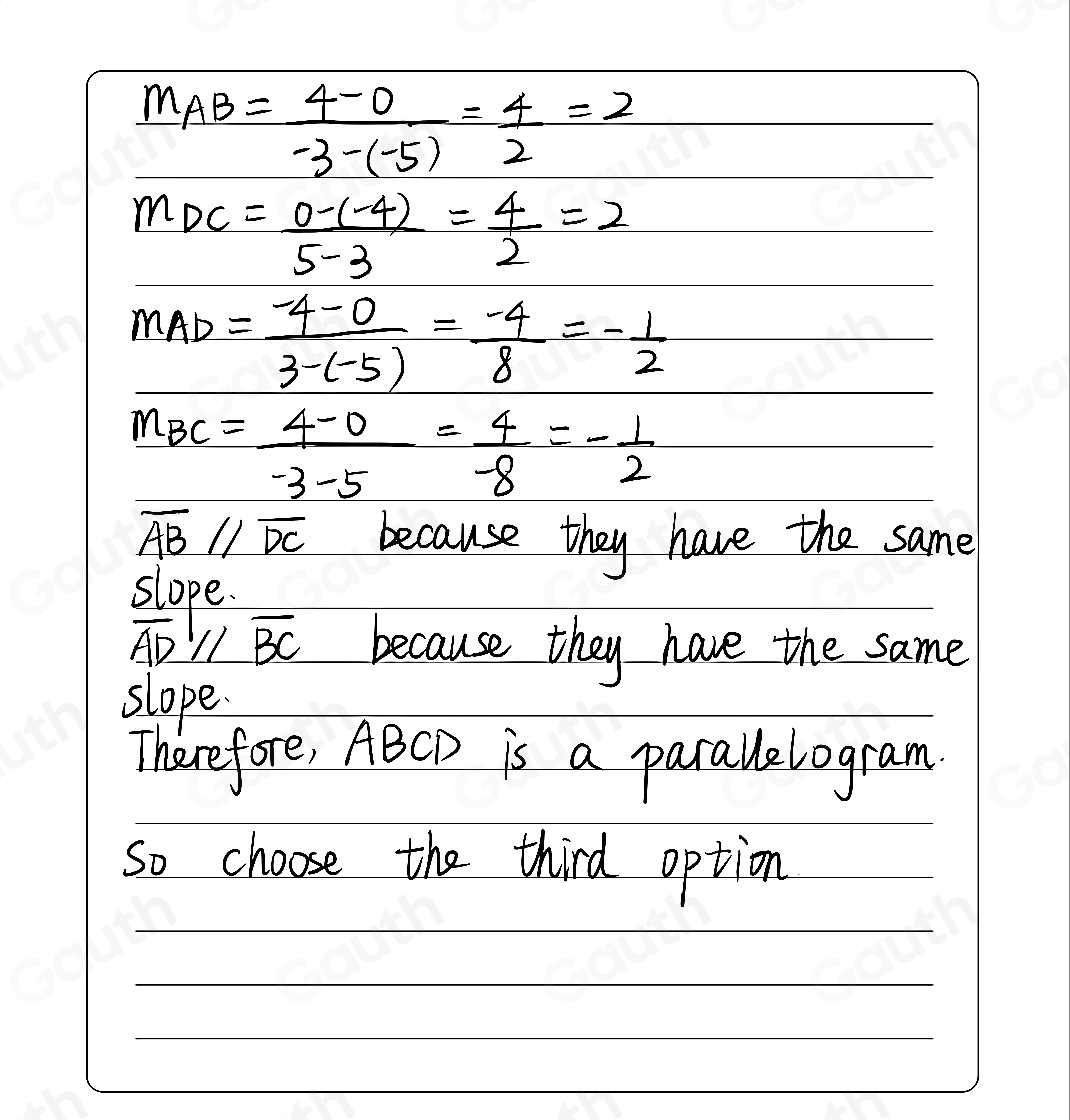 mAB = 4-0 / -3-(-5) = 4/2 = 2
mDC = 0-(-4) / 5-3 = 4/2 = 2
mAD = -4-0 / 3-(-5) = -4/8 = -1/2
mBC = 4-0 / -3-5 = 4/-8 = -1/2
AB // DC because they have the same
slope.
AD // BC because they have the same
slope.
Therefore, ABCD is a parallelogram.
So choose the third option
Gauth